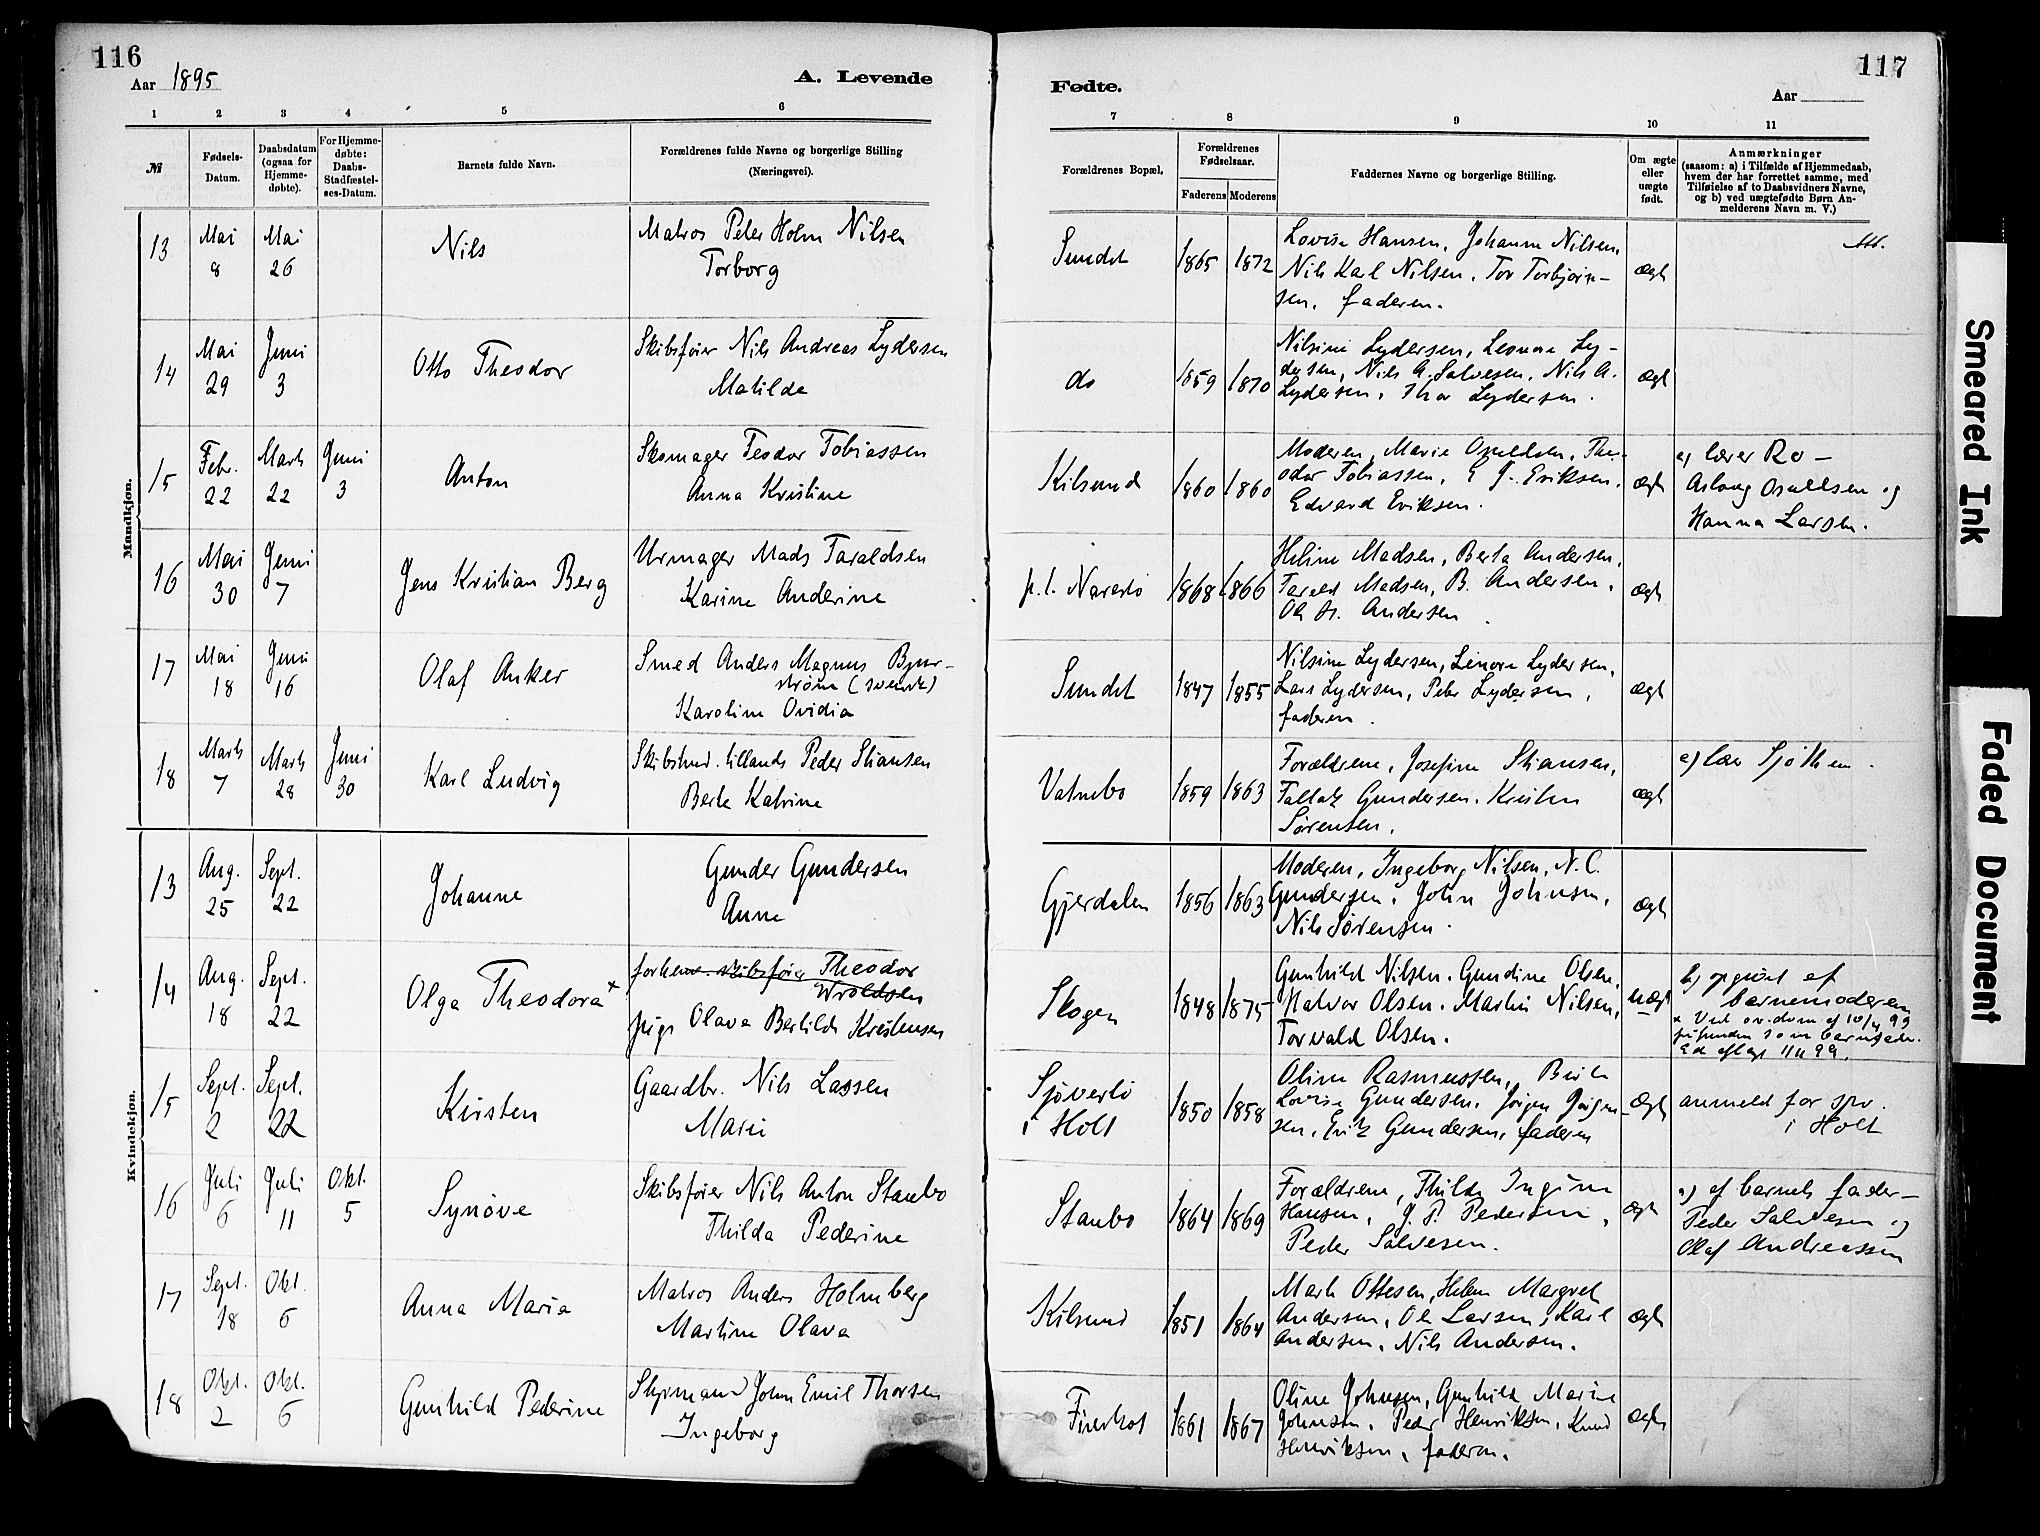 116
Aar 1895
A. Levende
1 2 3 4 5 6
№
Fødsels-
Datum.
Daabsdatum
(ogsaa for
Hjemme-
døbte).
For Hjemme-
døbte:
Daabs-
Stadfæstel-
ses-Datum.
Barnets fulde Navn.
Forældrenes fulde Navne og borgerlige Stilling
(Næringsvei).
Mandkjøn.
13 Mai 8 Mai 26 Nils
Matros Peter Holm Nilsen
Torborg
14 Mai 29 Juni 3 Otto Theodor
Skibsfører Nils Andreas Lydersen
Matilde
15 Febr. 22 Marts 22 Juni 3 Anton
Skomager Teodor Tobiassen
Anna Kristine
16 Mai 30 Juni 7 Jens Kristian Berg
Urmager Mads Taraldsen
Karine Anderine
17 Mai 18 Juni 16 Olaf Anker
Smed Anders Magnus Bjur-
strøm (svensk)
Karoline Ovidia
18 Marts 7 Marts 28 Juni 30 Karl Ludvig
Skibstmd. tillands Peder Stiansen
Berte Katrine
Kvindekjøn.
13 Aug. 25 Sept. 22 Johanne
Gunder Gundersen
Anne
14 Aug. 18 Sept. 22 Olga Theodora x
forhenv. skibsfører Theodor
Wroldsen
pige Olava Bertilde Kristensen
15 Sept. 2 Sept. 22 Kirsten
Gaardbr. Nils Lassen
Marie
16 Juli 6 Juli 11 Okt. 5 Synøve
Skibsfører Nils Anton Staubo
Thilda Pederine
17 Sept. 18 Okt. 6 Anna Maria
Matros Anders Holmberg
Martine Olava
18 Okt. 2 Okt. 6 Gunhild Pederine
Styrmand John Emil Thorsen
Ingeborg
117
Fødte.
Aar
7 8 9 10 11
Forældrenes Bopæl.
Forældrenes
Fødselsaar.
Faderens Moderens
Faddernes Navne og borgerlige Stilling.
Om ægte
eller
uægte
født.
Anmærkninger
(saasom: a) i Tilfælde af Hjemmedaab,
hvem der har forrettet samme, med
Tilføielse af to Daabsvidners Navne,
og b) ved uægtefødte Børn An-
melderens Navn m. V.)
Sundet 1865 1872
Lovise Hansen, Johanne Nilsen,
Nils Karl Nilsen, Tor Torbjørn-
sen, faderen.
ægte
do 1859 1870
Nilsine Lydersen, Leonore Ly-
dersen, Nils A. Salvesen, Nils A.
Lydersen, Thor Lydersen.
ægte
Kilsund 1860 1860
Moderen, Marie Osuldsen, The-
odor Tobiassen, E J. Eriksen,
Edvard Eriksen.
ægte
a) lærer Ro-
Aslaug Osuldsen og
Hanna Larsen.
p. t. Narestø 1868 1866
Heline Madsen, Berta Andersen,
Tarald Madsen, B. Andersen,
Andersen
ægte
Sundet 1847 1855
Nilsine Lydersen, Linore Lydersen,
Lars Lydersen, Peter Lydersen,
faderen.
ægte
Vatnebo 1859 1863
Forældrene, Josefine Stiansen,
Tallak Gundersen, Kristen
Sørensen.
ægte
a) lær Sjøthun.
Gjerdalen 1856 1863
Moderen, Ingeborg Nilsen, N. C.
Gundersen, John Johnsen,
Nils Sørensen.
ægte
Skogen 1848 1875
Gunhild Nilsen, Gundine Olsen,
Halvor Olsen, Martin Nilsen,
Torvald Olsen.
uægt
b) opgivet af
barnemoderen
x Ved ov.dom af 10/4 99
frifunden som barnefader.
Ed aflagt 11/4 99.
Sjøverstø
i Holt 1850 1858
Oline Rasmussen, Berte
Lovise Gundersen, Jørgen Jørgen-
sen, Erik Gundersen, faderen
ægte
anmeld for spr.
i Holt
Staubo 1864 1869
Forældrene, Thilda Ingine
Hansen, J. P. Pedersen,
Peder Salvesen.
ægte
a) af barnets fader-
Peder Salvesen og
Olaf Andreassen
Kilsund 1851 1864
Marte Ottesen, Helene Margret
Andersen, Ole Larsen, Karl
Andersen, Nils Andersen.
ægte
1861 1867
Oline Johnsen, Gunhild Marine
Johnsen, Peder Henriksen, Knud
Henriksen, faderen.
ægte
Smeared Ink
Faded Document